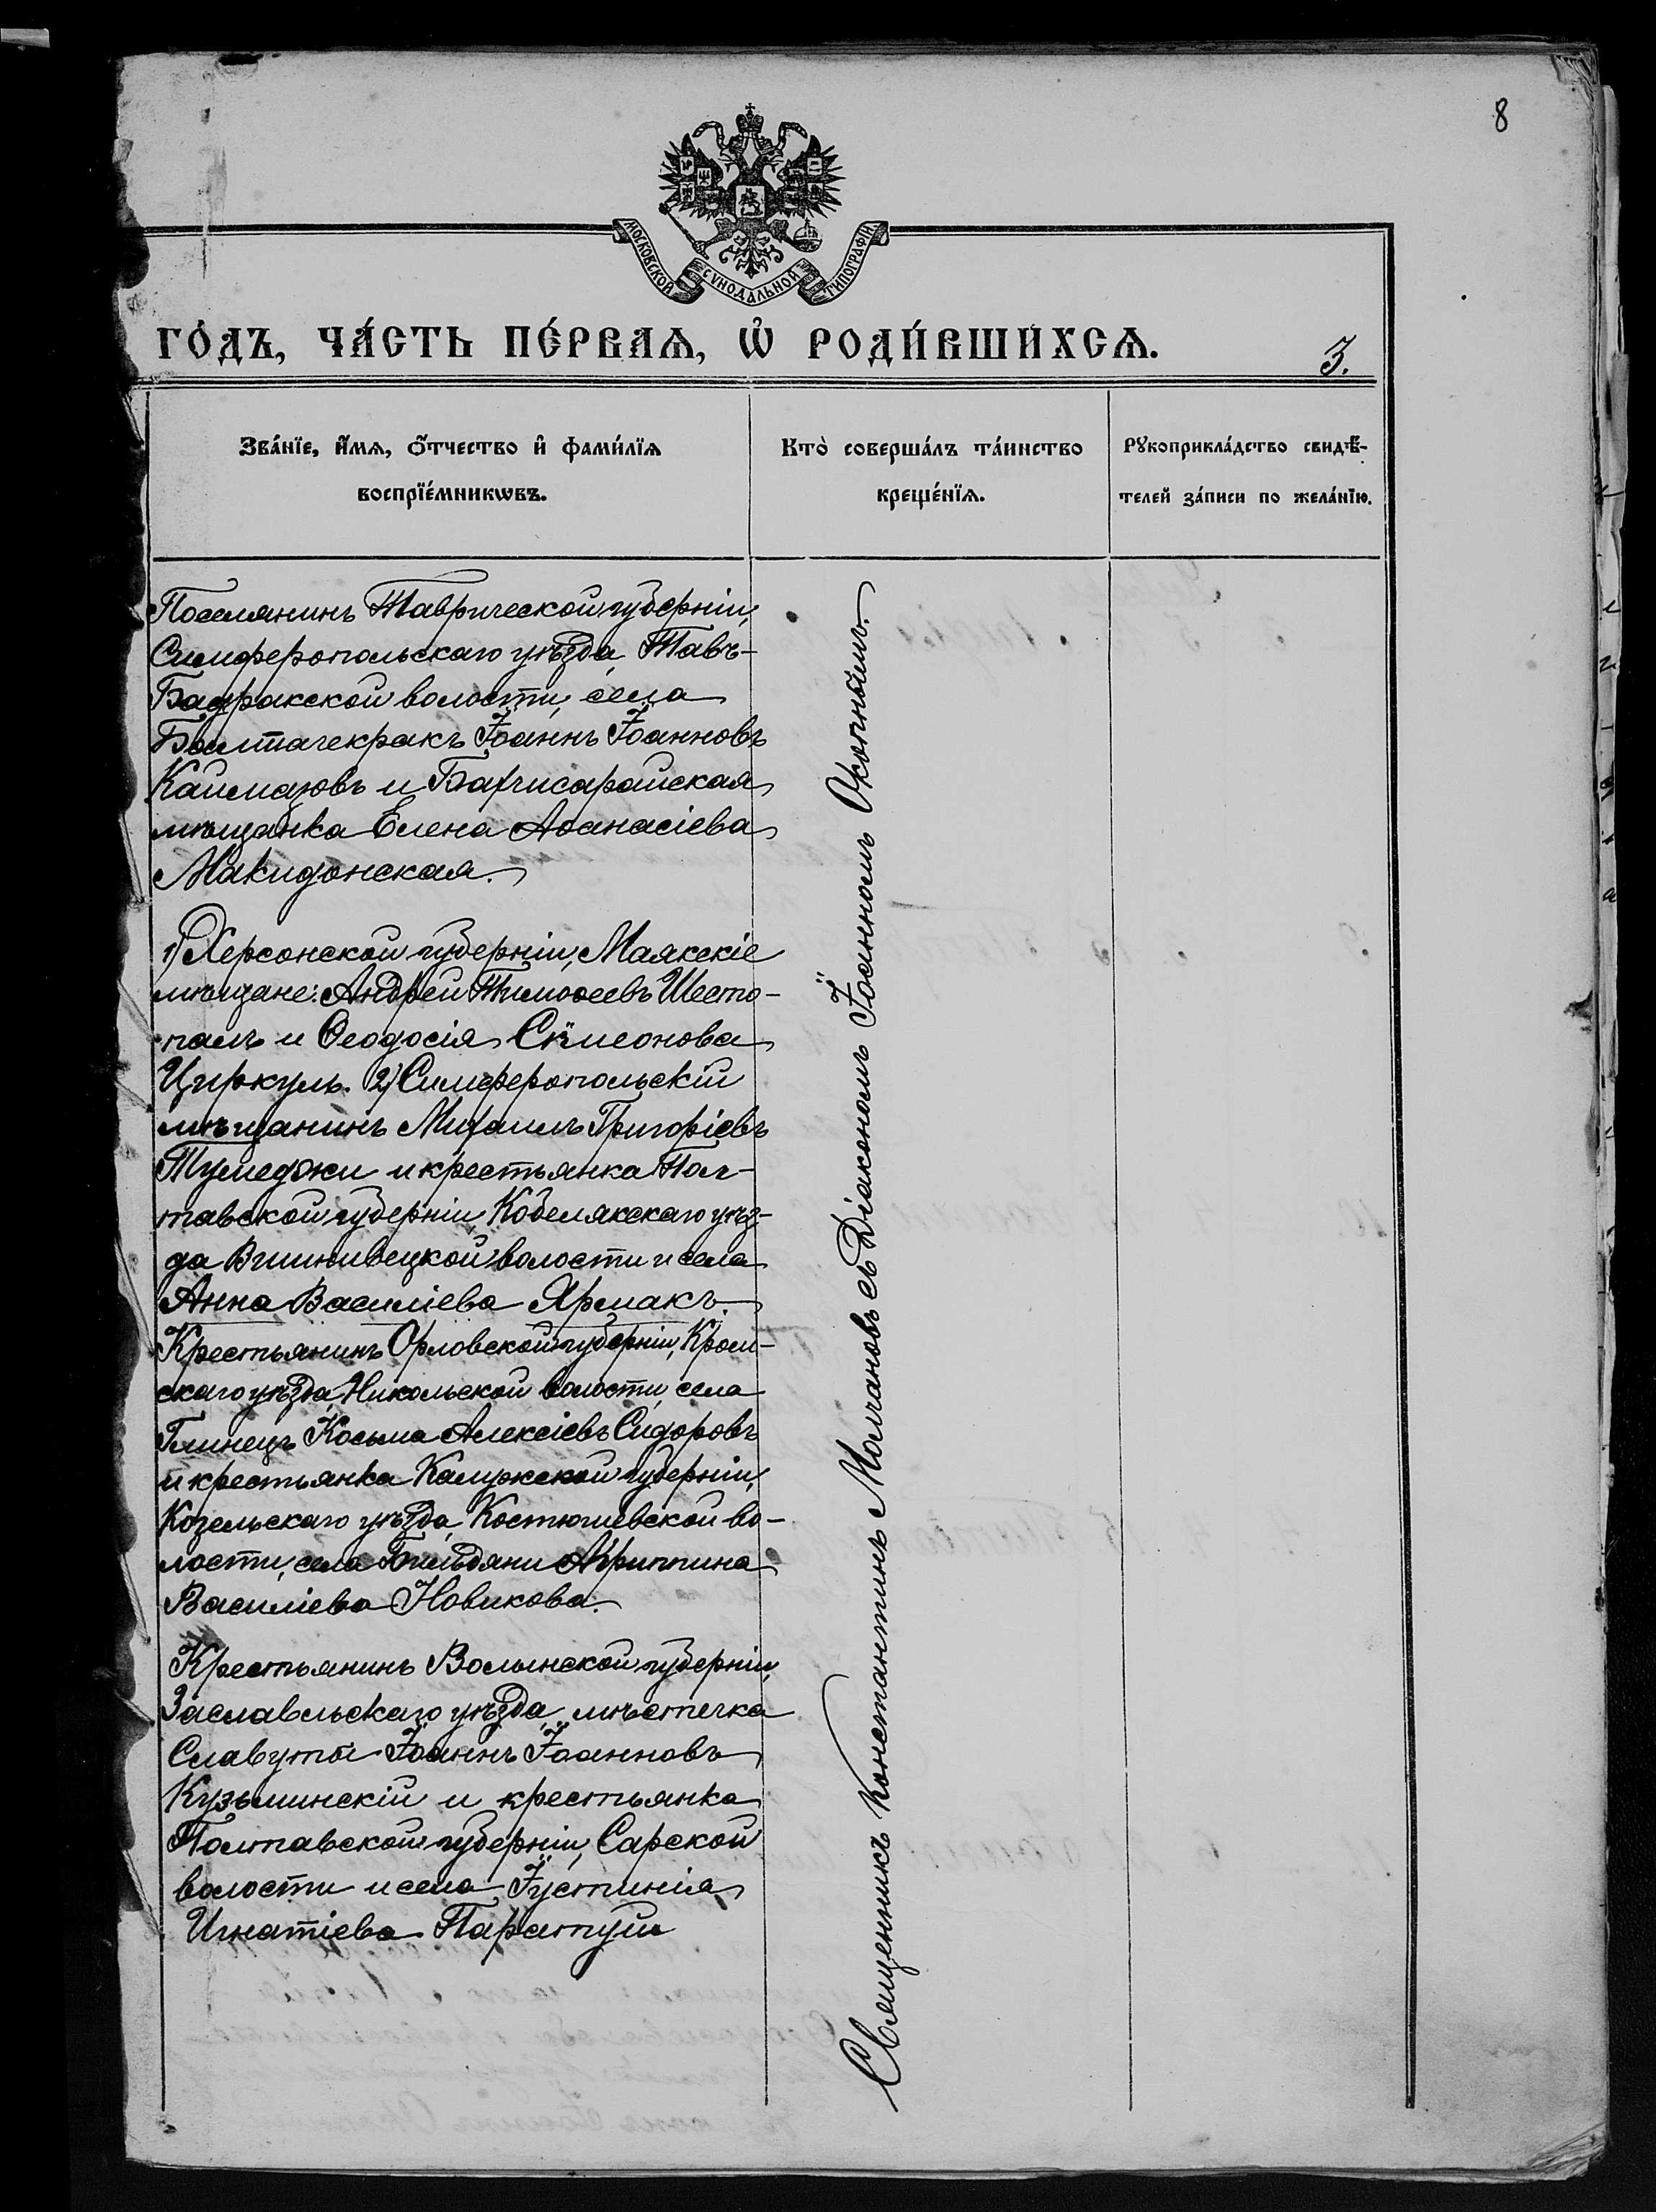 8
МОСКОВСКОЙ СѴНОДАЛЬНОЙ ТИПОГРАФІИ
ГО́ДЪ, ЧА́СТЬ ПЕ́РВАѦ, Ѡ҆ РОДИ́ВШИХСѦ.
3.
Зва́нїе, и҆́мѧ, ѻ҆́тчество и҆ фами́лїѧ
воспрїе́мникѡвъ.
Кто̀ соверша́лъ та́инство
креще́нїѧ.
Рꙋкоприкла́дство свидѣ́-
телей за́писи по жела́нїю.
Поселянинъ Таврической губерніи,
Симферопольскаго уѣзда, Тавъ-
Бадракской волости, села
Болтачекракъ Іоаннъ Іоанновъ
Каймазовъ и Бахчисарайская
мѣщанка Елена Аѳанасіева
Македонская.
1) Херсонской губерніи, Маякскіе
мѣщане: Андрей Тимоѳеевъ Шесто-
палъ и Ѳеодосія Симеонова
Циркуль. 2) Симферопольскій
мѣщанинъ Михаилъ Григоріевъ
Тумеджи и крестьянка Пол-
тавской губерніи Кобелякскаго уѣз-
да Вишнивецкой волости и села
Анна Василіева Ярмакъ.
Крестьянинъ Орловской губерніи, Кром-
скаго уѣзда, Никольской волости, села
Глинецъ Косьма Алексіевъ Сидоровъ
и крестьянка Калужской губерніи,
Козельскаго уѣзда, Костюшевской во-
лости, села Агриппина
Василіева Новикова.
Крестьянинъ Волынской губерніи,
Заславльскаго уѣзда, мѣстечка
Славуты Іоаннъ Іоанновъ
Кузьминскій и крестьянка
Полтавской губерніи, Сарской
волости и села Іустинія
Игнатіева Паратуш
Священникъ Константинъ Молчановъ съ Діакономъ Іоанномъ Окопнымъ.